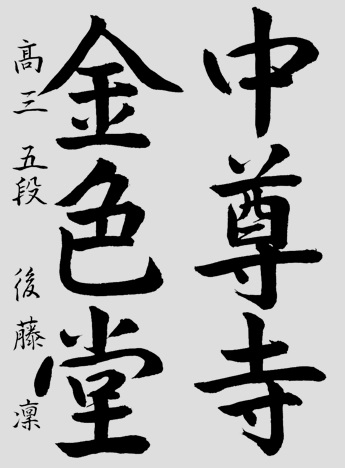 中尊寺
金色堂
高三 五段 後藤凜